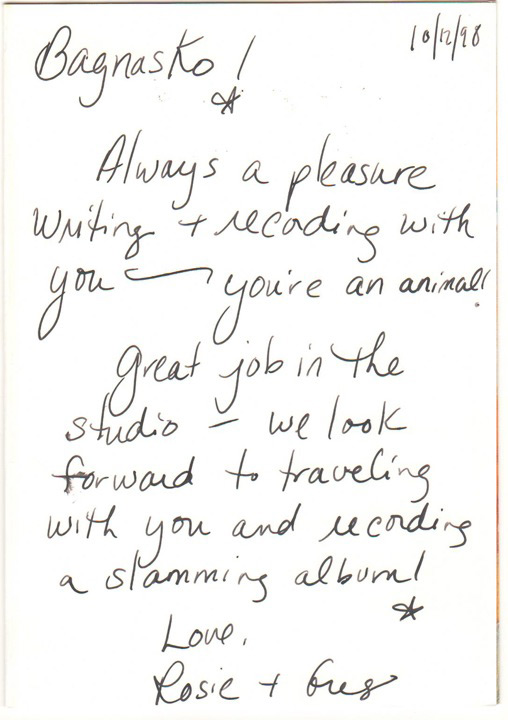 10/12/98
Bagnasko!
Always a pleasure
writing + recording with
you — you're an animal!
Great job in the
studio — we look
forward to traveling
with you and recording
a slamming album!
Love,
Rosie + Greg